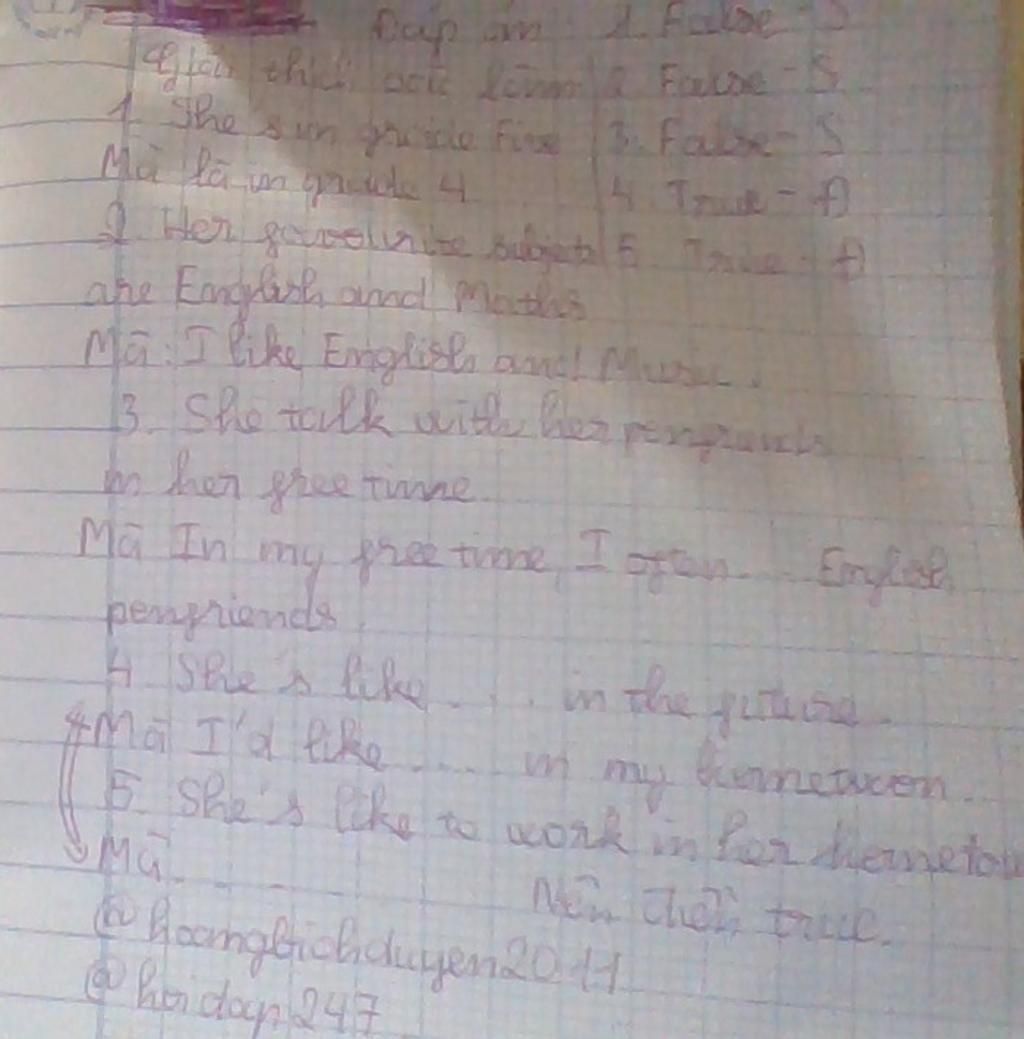 Đáp án 1. False - S
Giải thích các làm 2 False - S
1. She's in grade Five 3. False - S
Mà là in grade 4 4. True - Đ
2 Her favourite subjects 5 True - Đ
are English and Maths
Mà: I like English and Music.
3. She talk with her penfriends
in her free time.
Mà In my free time, I often... English
penfriends.
4 She's like... in the future.
Mà I'd like .... in my hometown.
5 She's like to work in her hometow
Mà...
Nên chọn true.
@hoangbichduyen2011
@hoidap247